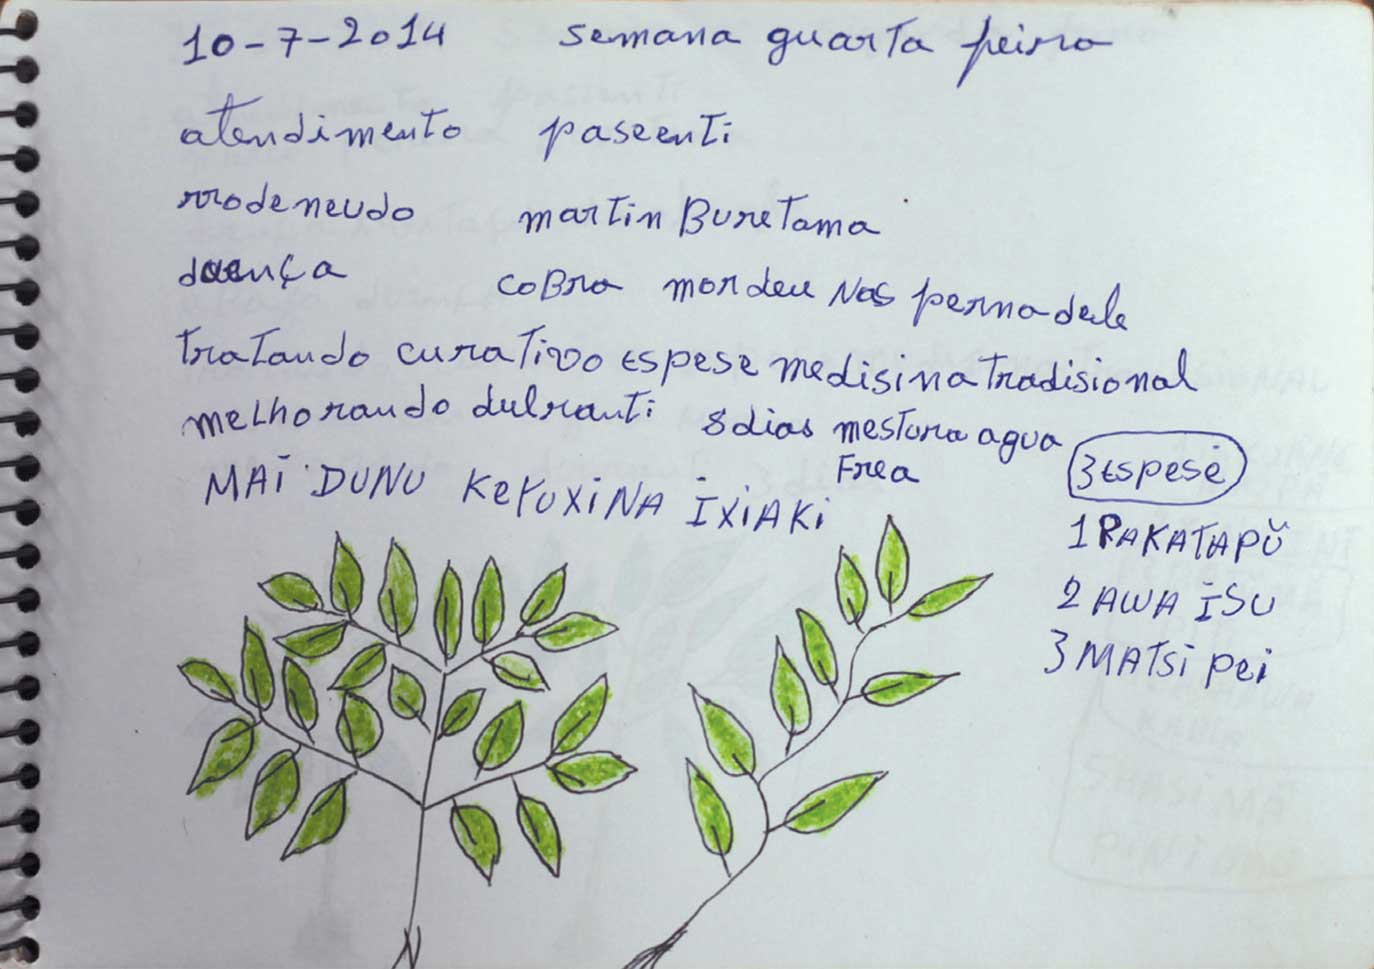 10-7-2014 semana quarta feira
atendimento paseenti
rrodeneudo martin Buretama
doença cobra mordeu nas perna dele
tratando curativo espese medisina tradisional
melhorando dulranti 8 dias mestura agua
frea
MAI DUNU KEYUXINA IXIAKI
3 espese
1 RAKATAPŬ
2 AWA ISU
3 MATSI PEI